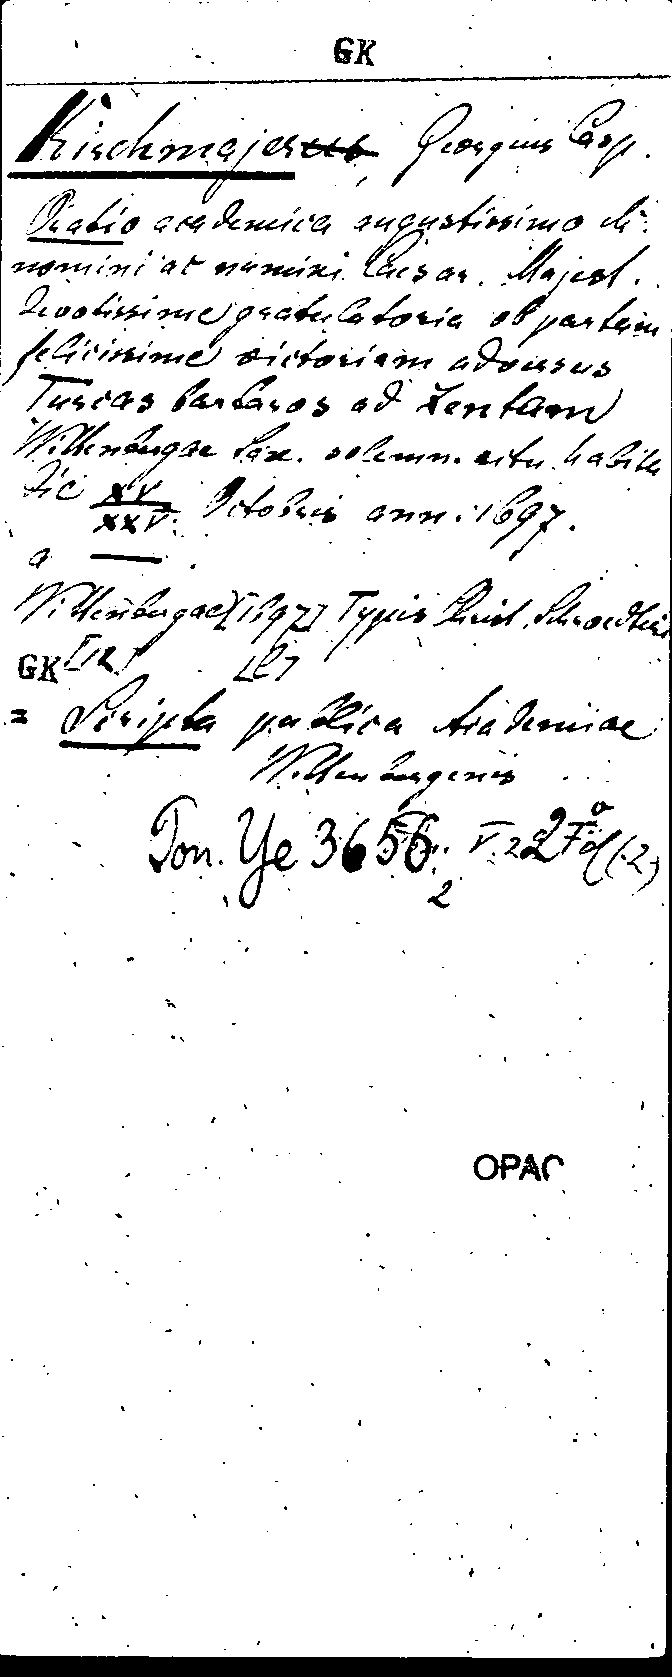 GK
Kirchmajerus, Georgius Casp.
Oratio academica augustissimo di-
nomini ac numini Caesar. Majest.
devotissime gratulatoria ob partam
felicissime victoriam adversus
Turcas barbaros ad Zentam
Wittenbergae Sax. solemn. ritu habita
die XV/XXV. Octobris ann. 1697.
a
Wittenbergae [1697] Typis Christ. Schroedteri
GK
= Scripta publica Academiae
Wittenbergensis
Pon. Ye 3656. 2°
2
OPAC